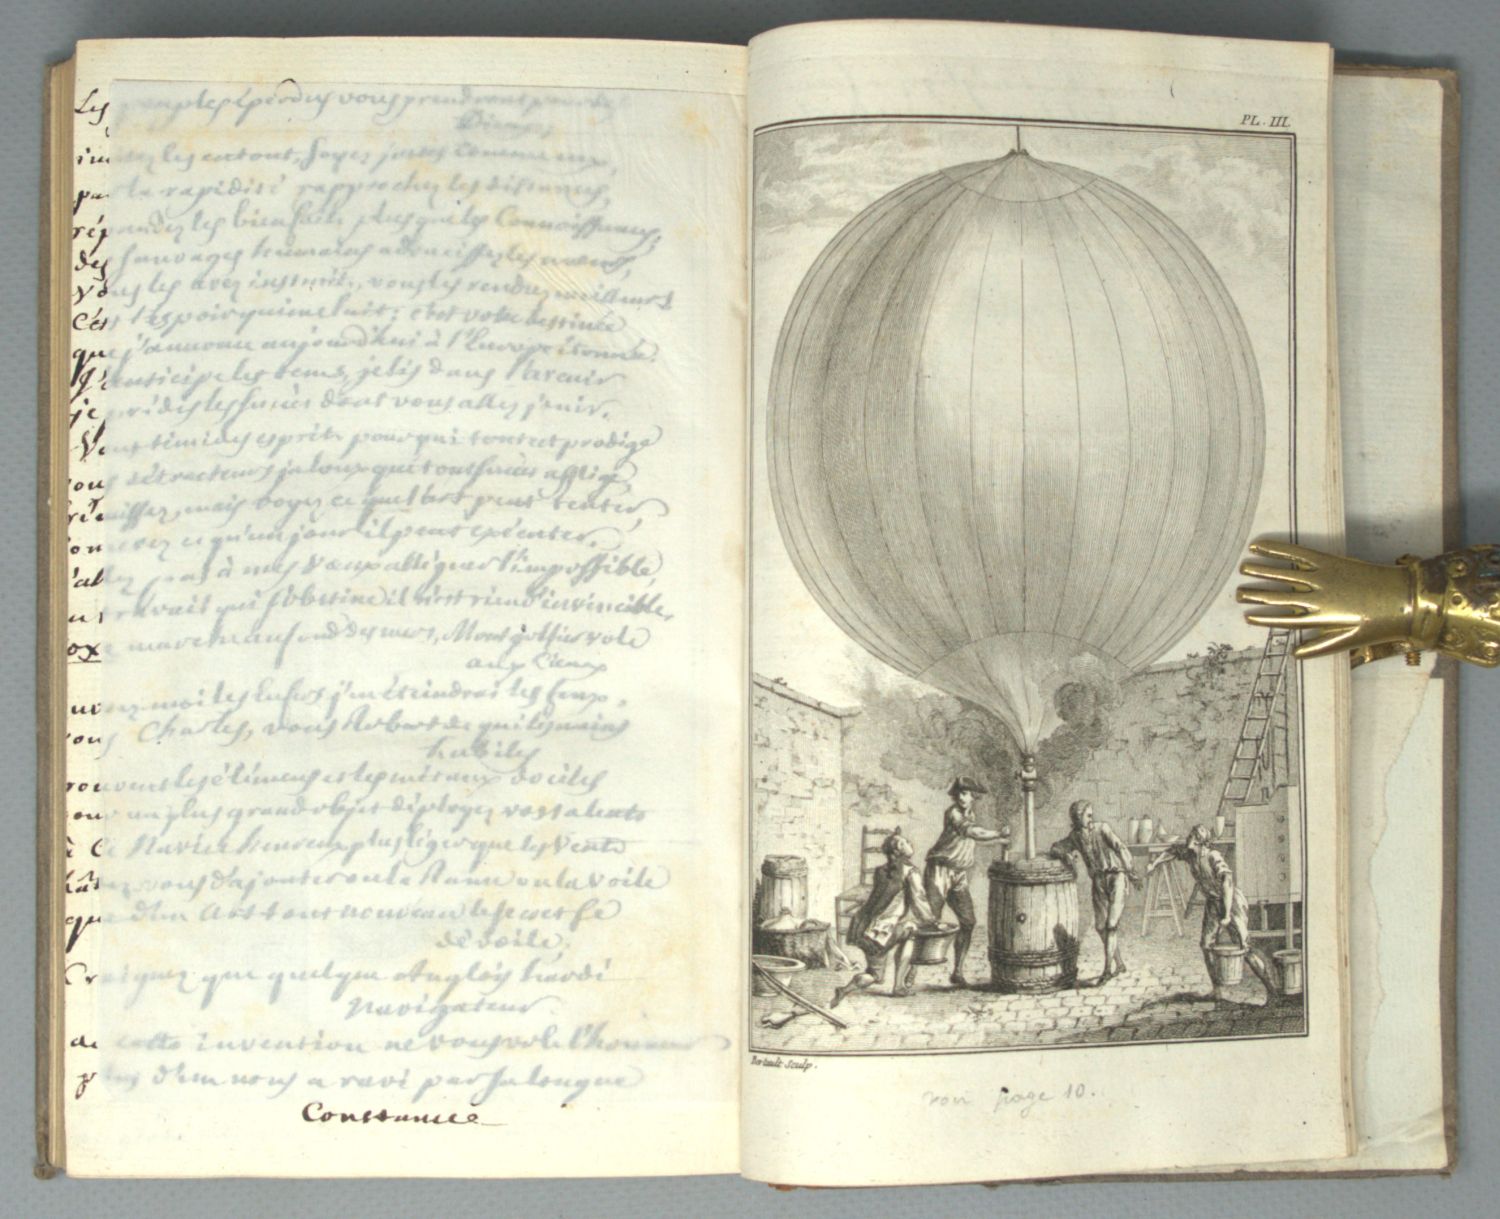 Les peuples éperdus vous prendront pour des
Dieux,
imitez les en tout, soyez justes comme eux,
par la rapidité rapprochez les distances,
répandez les bienfaits plus que les Connoissances,
des Sauvages humains adoucissez les mœurs,
Vous les avez instruit, vous les rendez meilleurs
C'est l'espoir qui me luit; c'est votre destinée
que j'annonce aujourd'hui à l'Europe étonnée.
J'anticipe les tems, je lis dans l'avenir
je prédis les succès dont vous allez jouir.
Vous timides esprits pour qui tout est prodige
vous détracteurs jaloux que tout succès afflige,
frémissez, mais voyez ce que l'art peut tenter,
ce qu'un jour il peut exécuter.
pas à mes Vœux alléguer l'impossible,
travail qui s'obstine il n'est rien d'invincible,
au fond des mers, Montgolfier vole
aux Cieux
ouvrez moi les Enfers j'en éteindrai les feux,
vous Charles, vous Robert de qui les mains
habiles
trouvent les éléments et les métaux dociles
pour un plus grand objet déployez vos talents
à ce Navire heureux plus léger que les Vents
hâtez-vous d'ajouter ou la Rame ou la Voile
que d'un Art tout nouveau le secret se
dévoile;
Craignez que quelque Anglois hardi
Navigateur
de cette invention ne vous vole l'honneur
plus d'un nous a ravi par sa longue
Constance
PL. III.
Bertault Sculp.
voir page 10.